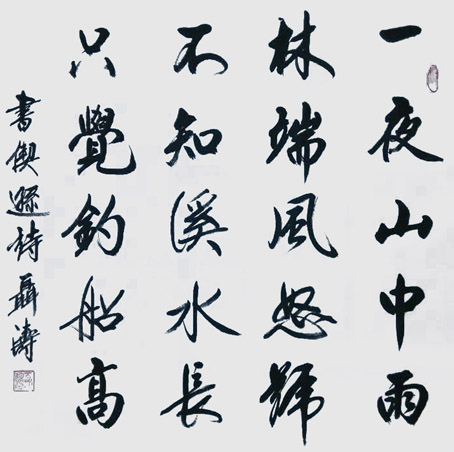 一夜山中雨
林端風怒號
不知溪水長
只覺釣船高
書偰遜詩聶濤